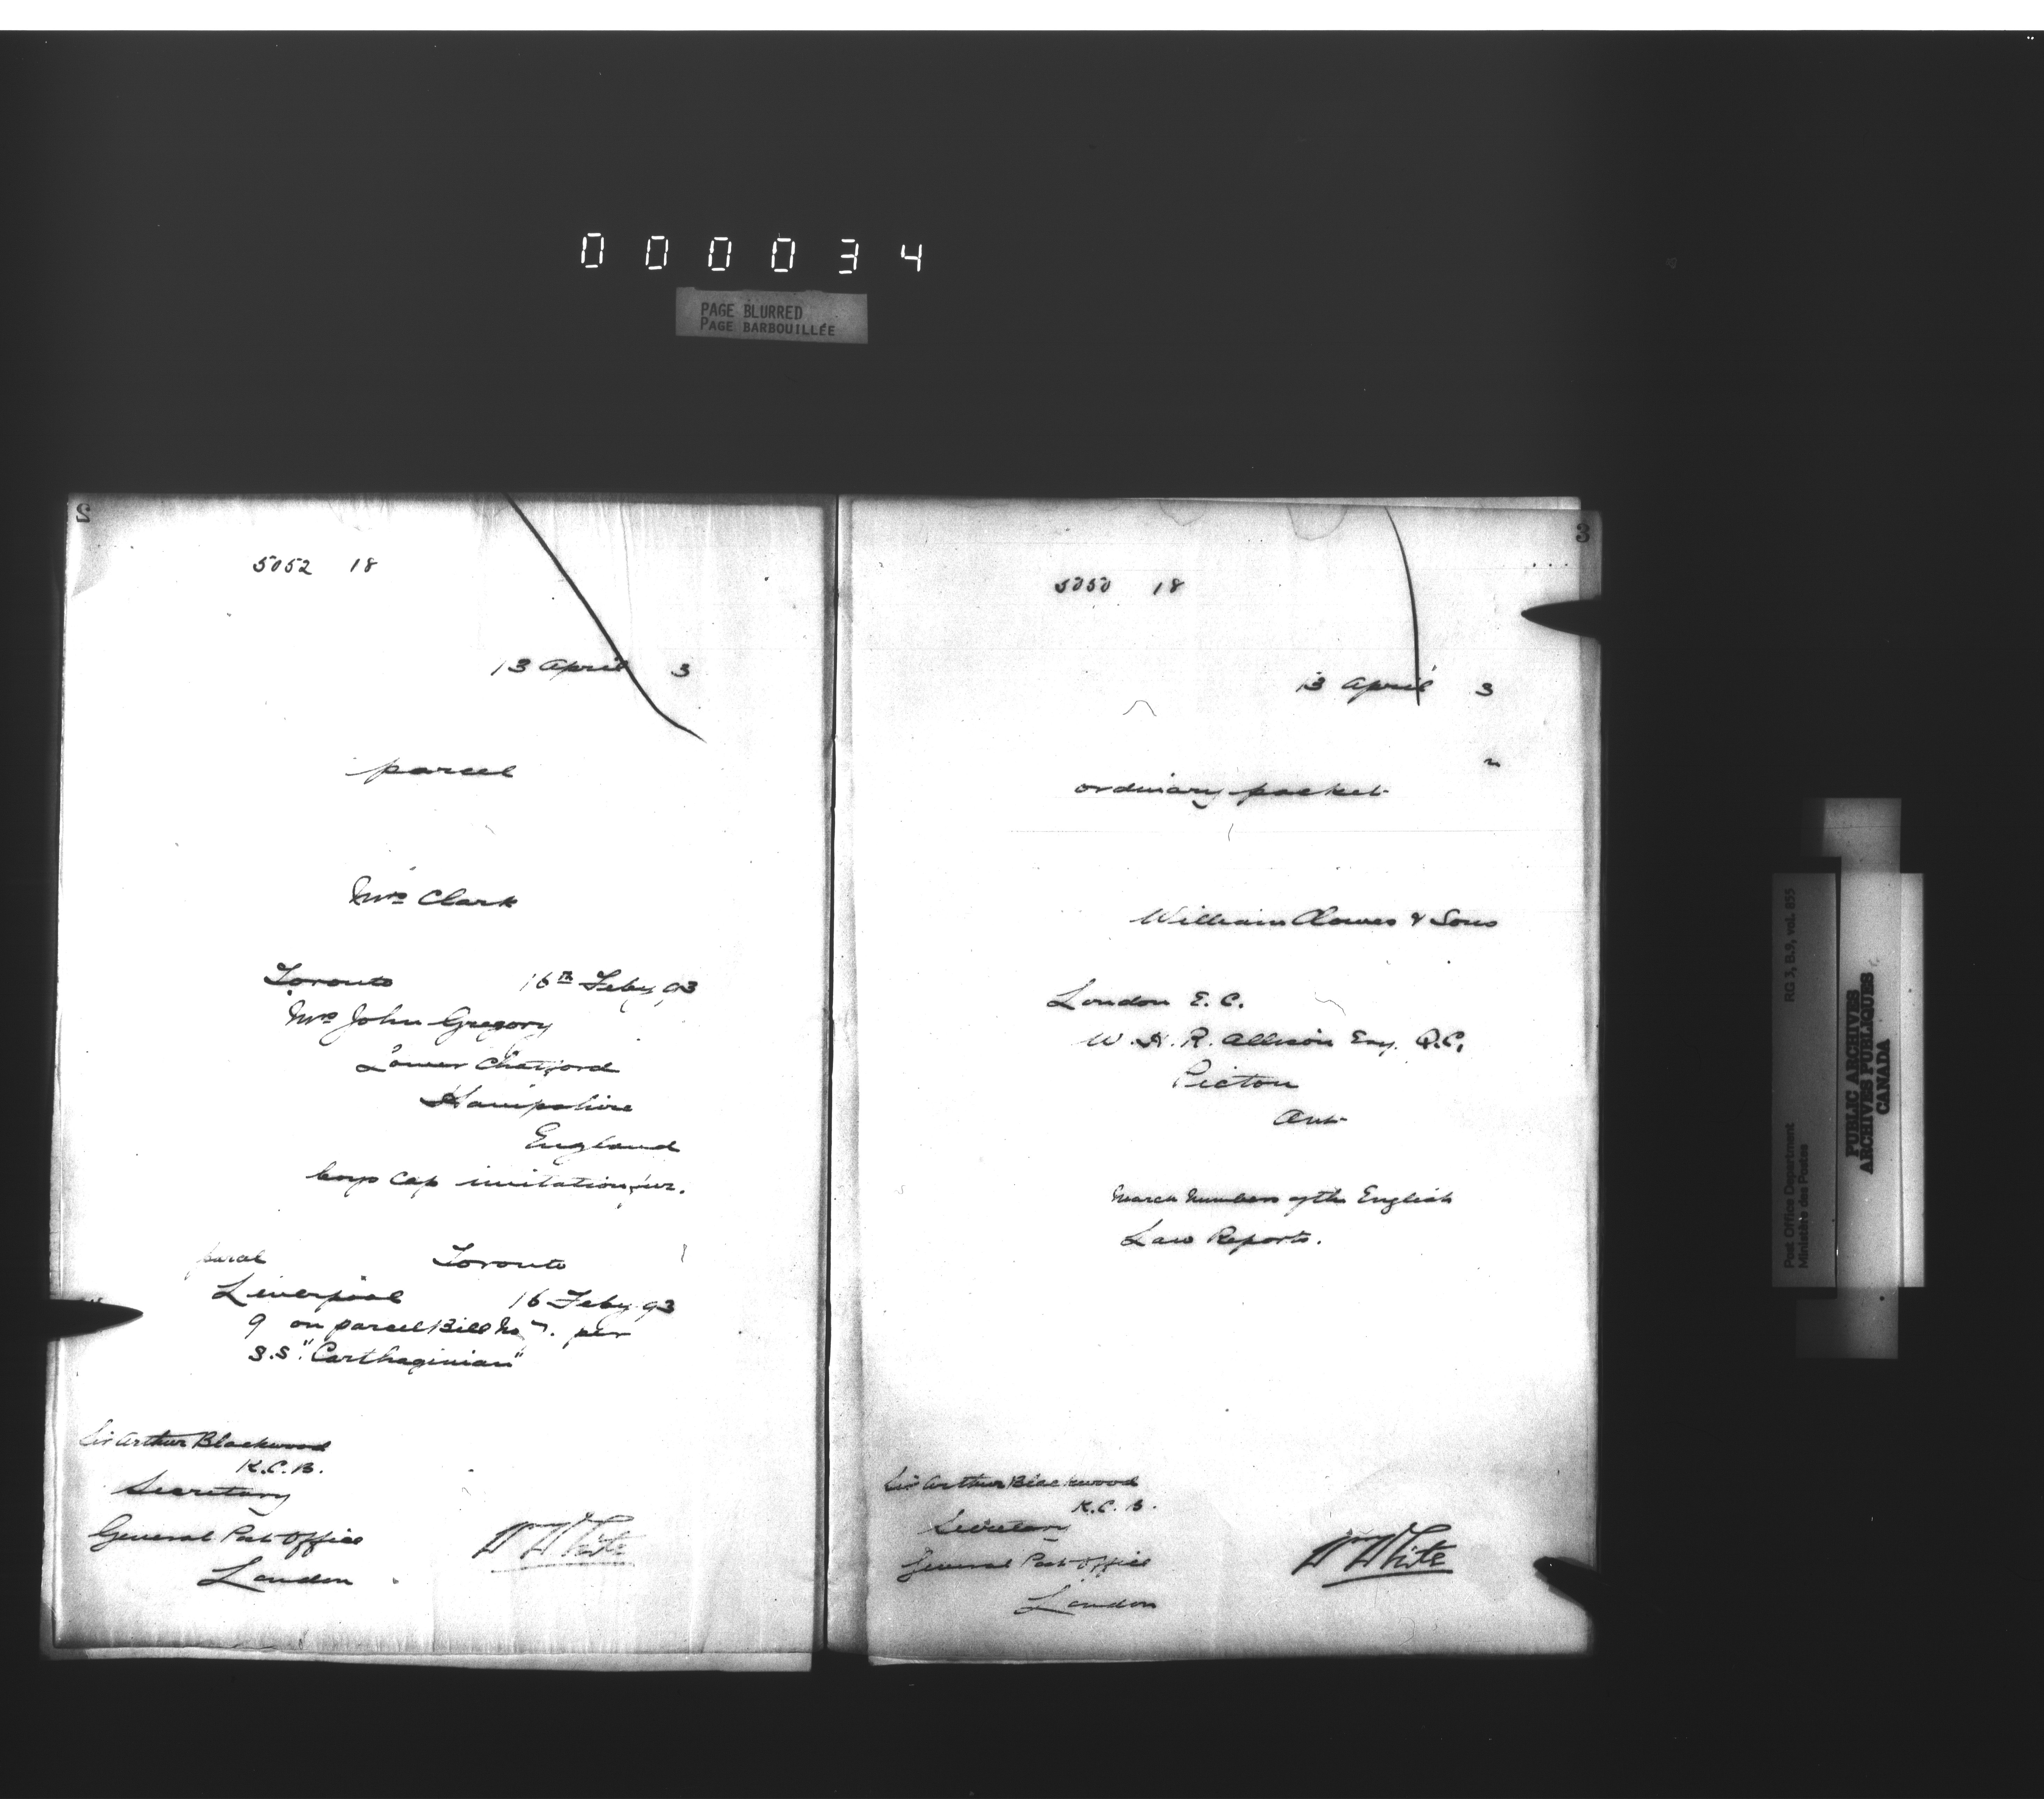 000034
PAGE BLURRED
PAGE BARBOUILLÉE
2
5052 18
13 April 3
parcel
Mrs Clark
Toronto 16th Feby 93
Mrs John Gregory
Lower
Hampshire
England
boys cap imitation fur.
parcel Toronto
Liverpool 16 Feby 93
9 on parcel Bill No 7. per
S.S. "Carthaginian"
Sir Arthur Blackwood
K.C.B.
Secretary
General Post Office
London
W White
3
5050 18
13 April 3
ordinary packet
William Clowes & Sons
London E.C.
W. H. R. Allison Esq. Q.C.
Picton
Ont
March Numbers of the English
Law Reports.
Sir Arthur Blackwood
K.C.B.
Secretary
General Post Office
London
Wm White
RG 3, B.9, vol. 855
Post Office Department
Ministère des Postes
PUBLIC ARCHIVES
ARCHIVES PUBLIQUES
CANADA